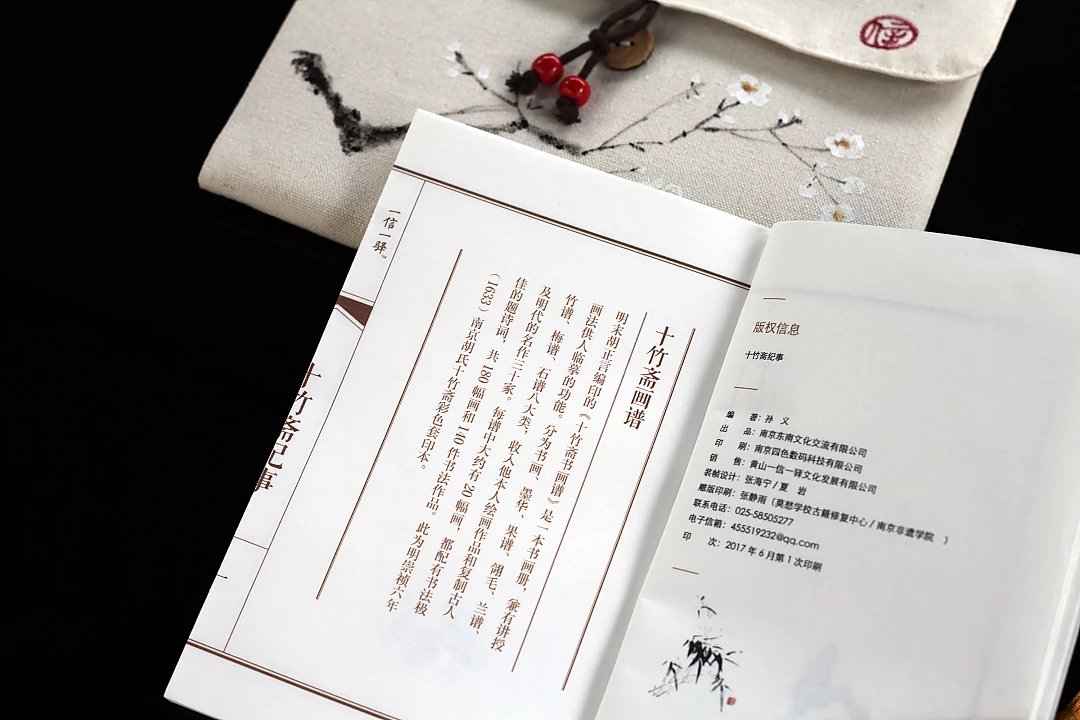 信
一信一驿™
十竹斋记事
一
十竹斋画谱
明末胡正言编印的《十竹斋书画谱》是一本书画册，兼有讲授
画法供人临摹的功能。分为书画、墨华、果谱、翎毛、兰谱、
竹谱、梅谱、石谱八大类，收入他本人绘画作品和复制古人
及明代的名作三十家。每谱中大约有20幅画，都配有书法极
佳的题诗词，共180幅画和140件书法作品。此为明崇祯六年
（1633）南京胡氏十竹斋彩色套印本。
版权信息
十竹斋纪事
编 著：孙 义
出 品：南京东南文化交流有限公司
印 刷：南京四色数码科技有限公司
销 售：黄山一信一驿文化发展有限公司
装帧设计：张海宁/夏 岩
雕版印刷：张静雨（莫愁学校古籍修复中心/南京非遗学院 ）
联系电话：025-58505277
电子信箱：455519232@qq.com
印 次：2017年6月第1次印刷